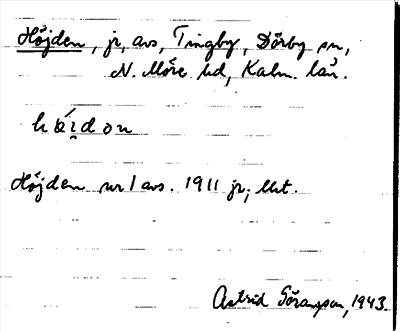 Höjden, jr, avs, Tingby, Dörby sn,
N. Möre hd, Kalm. län.
hǿi̯don
Höjden nr 1 avs. 1911 jr; Mt.
Astrid Göransson, 1943.